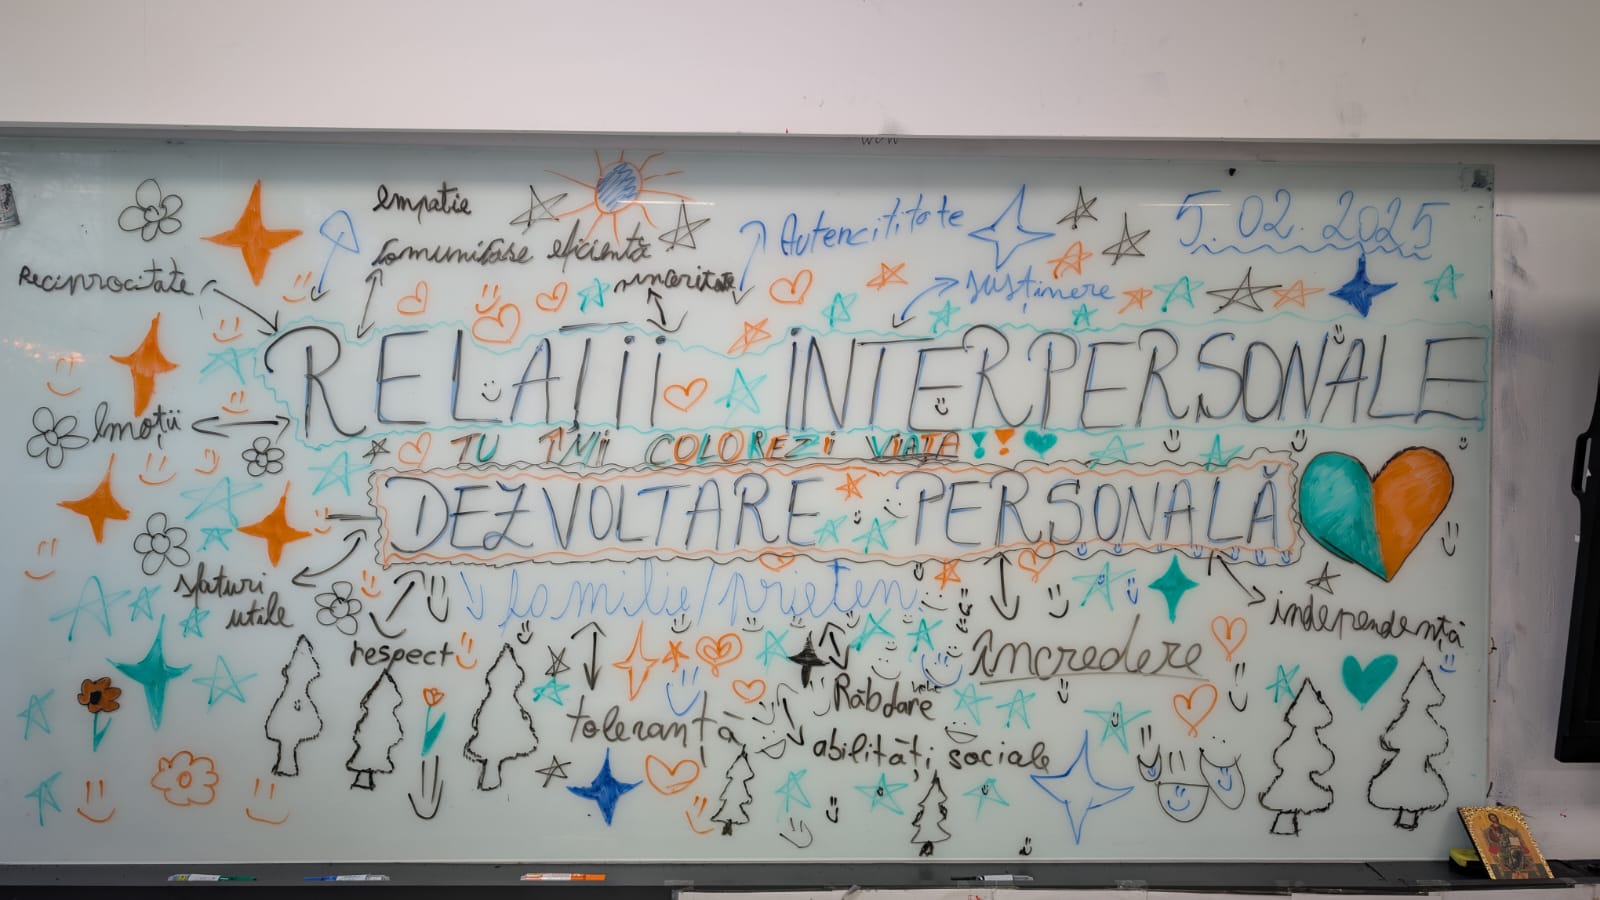 empatie
Autencititate
5.02.2025
comunicare eficientă
Reciprocitate
sinceritate
susținere
RELAȚII INTERPERSONALE
Emoții
TU ÎMI COLOREZI VIAȚA!!
DEZVOLTARE PERSONALĂ
sfaturi
utile
familie/prieteni
independență
respect
încredere
Răbdare
toleranță
abilități sociale